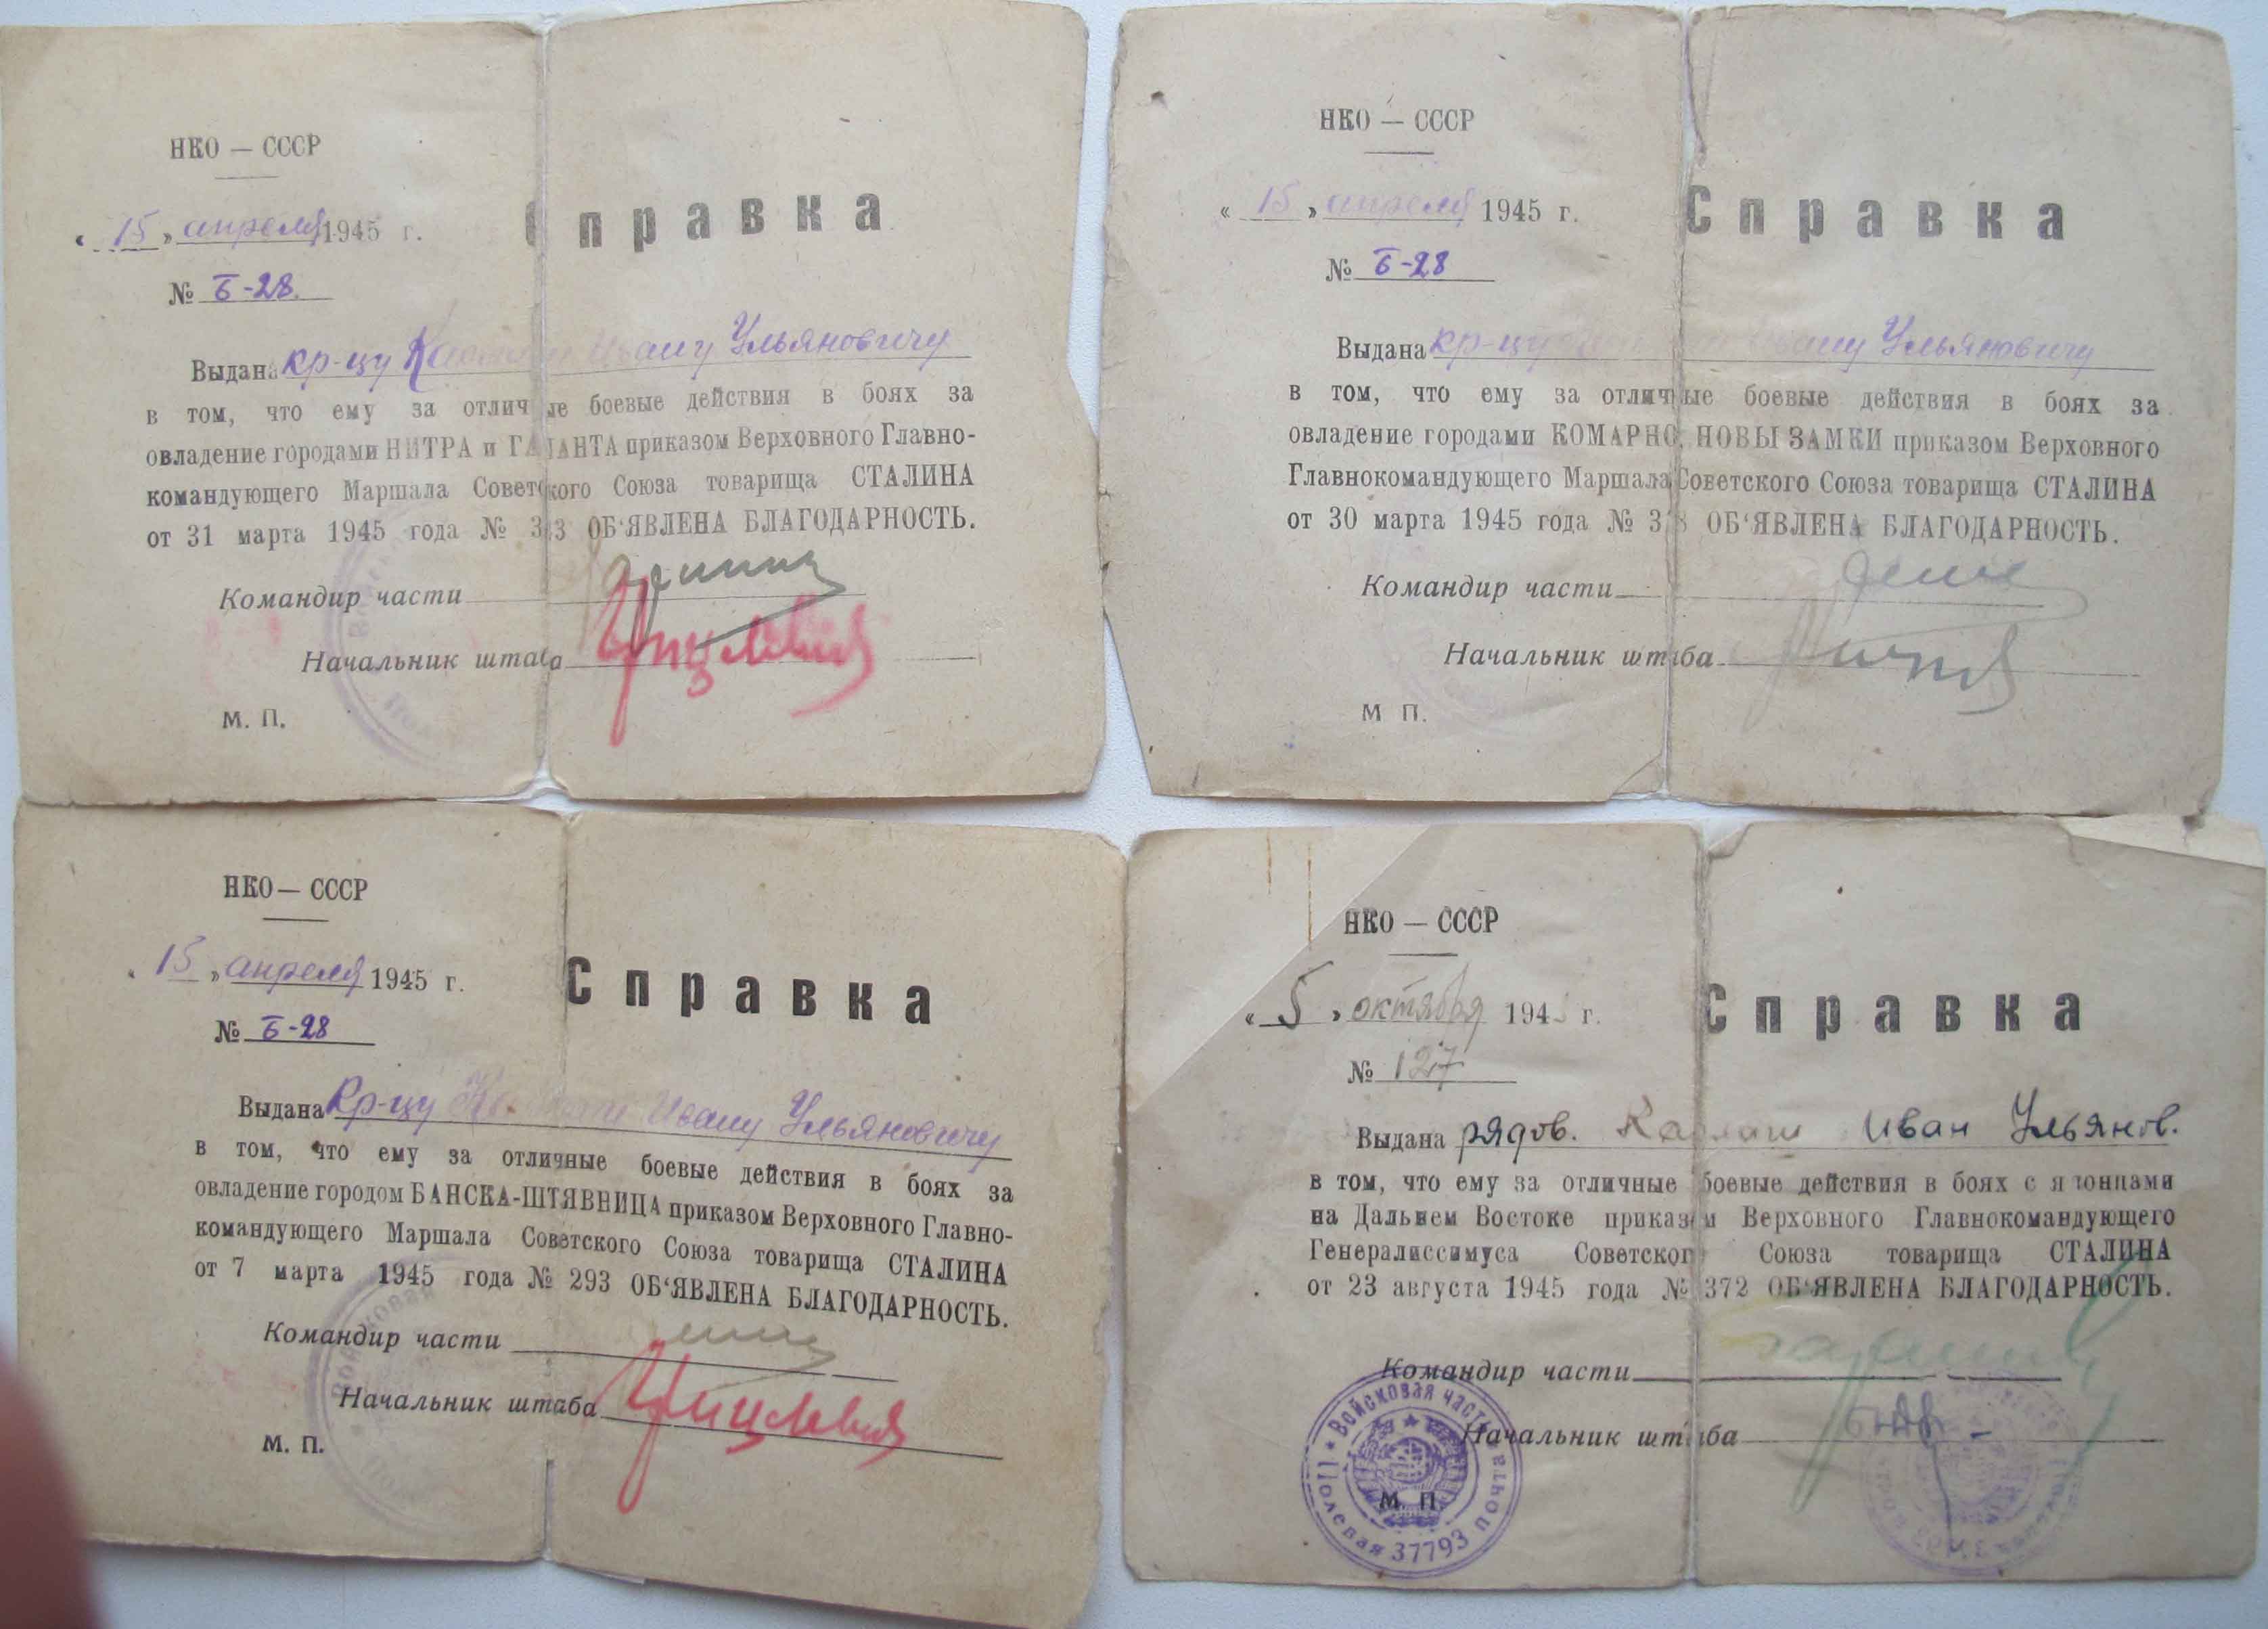 НКО — СССР
« 15 » апреля 1945 г.
Справка
№ Б-28.
Выдана кр-цу Ивану Ульяновичу
в том, что ему за отличные боевые действия в боях за
овладение городами НИТРА и ГАЛАНТА приказом Верховного Главно-
командующего Маршала Советского Союза товарища СТАЛИНА
от 31 марта 1945 года № ОБ‘ЯВЛЕНА БЛАГОДАРНОСТЬ.
Командир части
Начальник штаба
М. П.
НКО — СССР
« 15 » апреля 1945 г.
Справка
№ Б-28
Выдана кр-цу Ивану Ульяновичу
в том, что ему за отличные боевые действия в боях за
овладение городами КОМАРНО, НОВЫ ЗАМКИ приказом Верховного
Главнокомандующего Маршала Советского Союза товарища СТАЛИНА
от 30 марта 1945 года № ОБ‘ЯВЛЕНА БЛАГОДАРНОСТЬ.
Командир части
Начальник штаба
М П.
НКО — СССР
« 15 » апреля 1945 г.
Справка
№ Б-28
Выдана кр-цу Ивану Ульяновичу
в том, что ему за отличные боевые действия в боях за
овладение городом БАНСКА-ШТЯВНИЦА приказом Верховного Главно-
командующего Маршала Советского Союза товарища СТАЛИНА
от 7 марта 1945 года № 293 ОБ‘ЯВЛЕНА БЛАГОДАРНОСТЬ.
Командир части
Начальник штаба
М. П.
НКО — СССР
« 5 » октября 194 г.
Справка
№ 127
Выдана рядов. Иван Ульянов.
в том, что ему за отличные боевые действия в боях с японцами
на Дальнем Востоке приказом Верховного Главнокомандующего
Генералиссимуса Советского Союза товарища СТАЛИНА
от 23 августа 1945 года № 372 ОБ‘ЯВЛЕНА БЛАГОДАРНОСТЬ.
Командир части
Начальник штаба
М. П.
Войсковая часть
Полевая 37793 почта